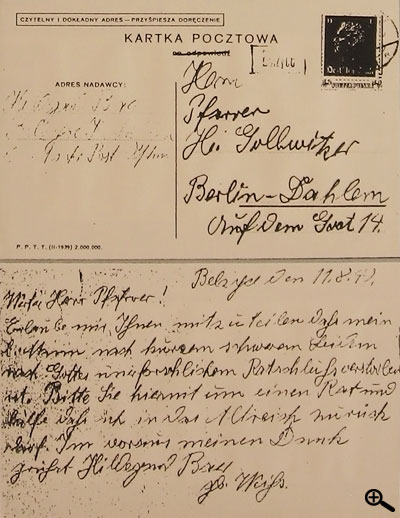 CZYTELNY I DOKŁADNY ADRES — PRZYŚPIESZA DORĘCZENIE
KARTKA POCZTOWA
ADRES NADAWCY:
Post
Herrn
Pfarrer
H. Gollwitzer
Berlin-Dahlem
Auf dem Grat 14.
P. P. T. T. (II-1939) 2.000.000.
Belzyce den 11.8.41.
Werter Herr Pfarrer!
Erlaube mir, Ihnen mitzuteilen daß mein
nach kurzem schweren Leiden
nach Gottes unerforschlichem Ratschluß verstorben
ist. Bitte Sie hiermit um einen Rat und
Hilfe daß ich in das Altreich zurück
darf. Im voraus meinen Dank
grüßt Hildegard
gb. Weiß.